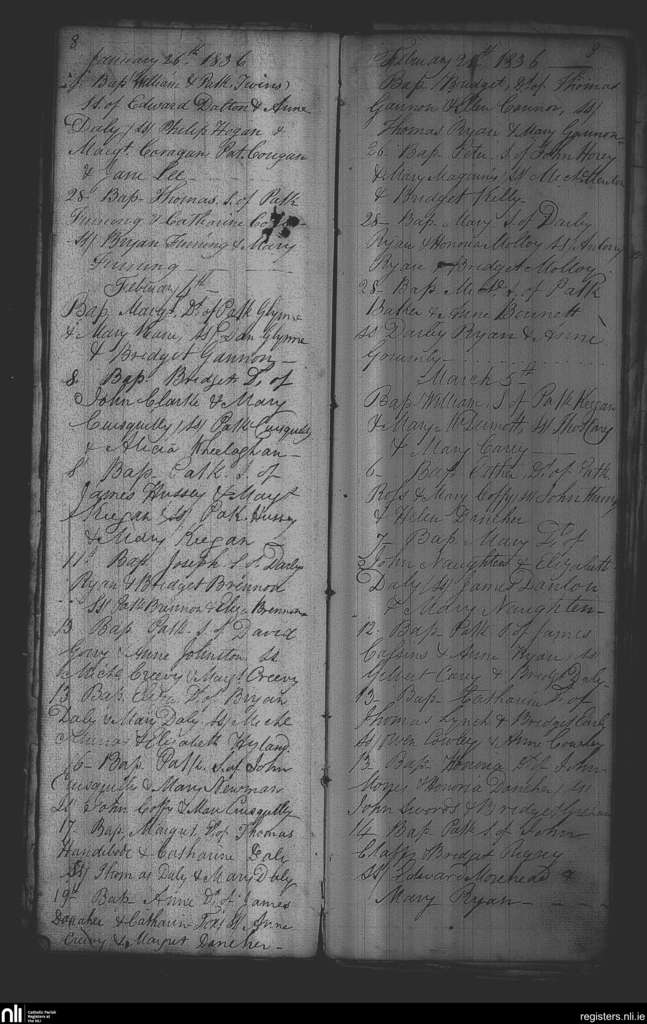 8
January 26th 1836
Bap William & Patk Twins
Ss. of Edward Dalton & Anne
Daly Ss Philip Hogan &
Margt. Coragan Pat. Cougan
& Jane Lee
28 Bap Thomas S. of Patk
& Catharine
Ss Bryan & Mary
February
Bap Margt. Dr. of Patk Glynne
& Mary Ss Dan Glynne
& Bridget Gannon
8 Bap Bridget D. of
John Clarke & Mary
Cuisquilly Ss Patk Cuisquilly
& Alicia Kheelaghan
8 Bap Patk. S. of
James Hussey & Margt
Keegan Ss Patk Hussey
& Mary Keegan
11th Bap Joseph S. of Darby
Ryan & Bridget Brennon
Ss Patk Brannon & Eliza Brennon
13 Bap Patk. S. of David
& Anne Johnston Ss
Michl Creevy & Margt Creevy
13 Bap D. of Bryan
Daly & Mary Daly Ss Michl
& Elizabeth Hyland
16 Bap Patk. S. of John
Cuisquilly & Mary Newman
Ss John Coffy & Mary Cuisquilly
17 Bap Margt D. of Thomas
& Catharine Daly
Ss Thomas Daly & Mary Daly
19th Bap Anne D. of James
Danaher & Catharin Ss Anne
Creevy & Margret Daneher
9
February 1836
Bap Bridget D. of Thomas
Gannon & Ellen Cannon, Ss
Thomas Ryan & Mary Gannon
26 Bap Peter S of John Horey
& Mary Magannis Ss Michl
& Bridget Kelly
28 Bap Mary S of Darby
Ryan & Honoria Molloy Ss Antony
Ryan & Bridget Molloy
28 Bap S. of Patk
Baker & Anne Bennett
Ss Darley Ryan & Anne
Gormily
March 5th
Bap William S of Patk Keegan
& Mary McDermott Ss Thos Carey
& Mary Carey
6 Bap Esther D. of Patk
Ross & Mary Coffy Ss John
& Helen Daneher
7 Bap Mary Dr. of
John Naughten & Elizabeth
Daly Ss James Danton
& Mary Naughten
12 Bap Patk S. of James
& Anne Ryan Ss
Gilbert Carey & Bridgt Daly
13 Bap Catharin D. of
Thomas Lynch & Bridget
Ss Owen Cowley & Anne Cowley
13 Bap Honoria D. of John
& Honoria Daneher Ss
John Swords & Bridget
14 Bap Patk S of John
& Bridget
Ss Edward Morehead &
Mary Ryan
nli
Catholic Parish
Registers at
the NLI
registers.nli.ie